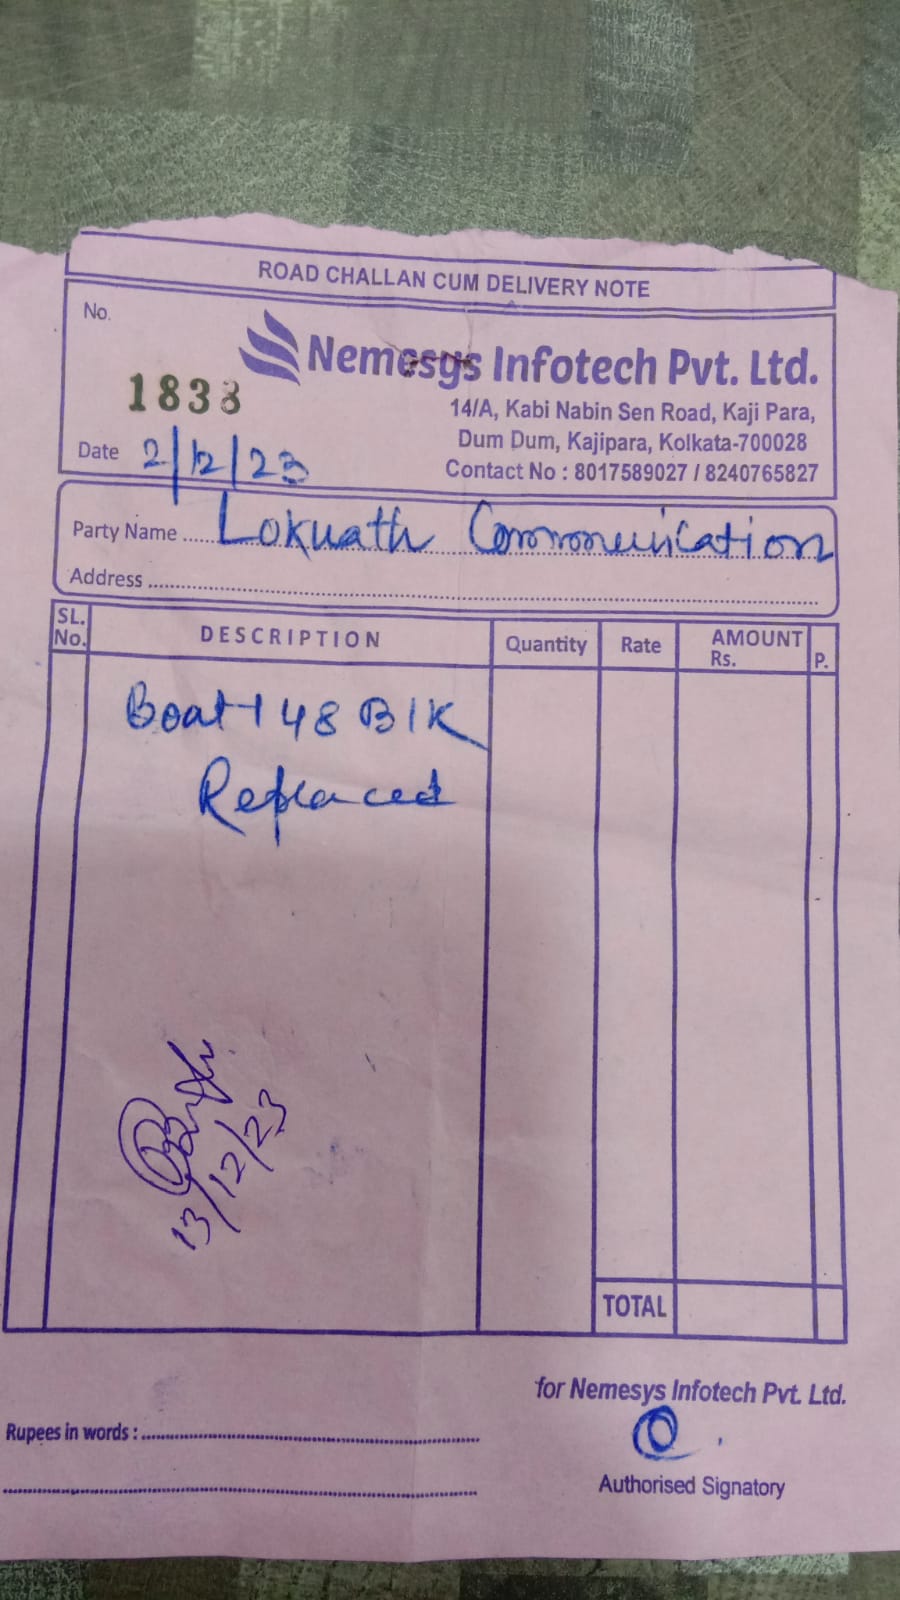 ROAD CHALLAN CUM DELIVERY NOTE
No.
Nemesys Infotech Pvt. Ltd.
1838
14/A, Kabi Nabin Sen Road, Kaji Para,
Dum Dum, Kajipara, Kolkata-700028
Date 2/12/23
Contact No : 8017589027 / 8240765827
Party Name Loknath Communication
Address
SL. No. DESCRIPTION Quantity Rate AMOUNT Rs. P.
Boat 148 Blk
Replaced
13/12/23
TOTAL
for Nemesys Infotech Pvt. Ltd.
Rupees in words :
Authorised Signatory